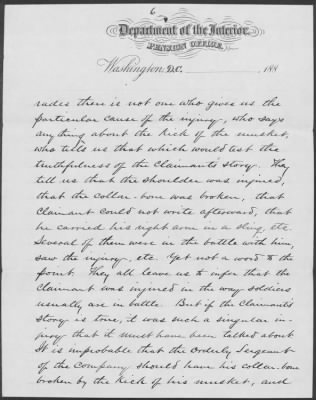 6
Department of the Interior,
PENSION OFFICE,
Washington, D.C. , 188
rades there is not one who gives us the
particular cause of the injury, who says
anything about the kick of the musket,
who tells us that which would test the
truthfulness of the Claimant's story. They
tell us that the shoulder was injured,
that the collar-bone was broken, that
Claimant could not write afterward, that
he carried his right arm in a sling, etc.
Several of them were in the battle with him,
saw the injury, etc. Yet not a word to the
point. They all leave us to infer that the
Claimant was injured in the way soldiers
usually are in battle. But if the Claimant's
story is true, it was such a singular in-
jury that it must have been talked about.
It is improbable that the Orderly Sergeant
of the Company should have his collar-bone
broken by the kick of his musket, and